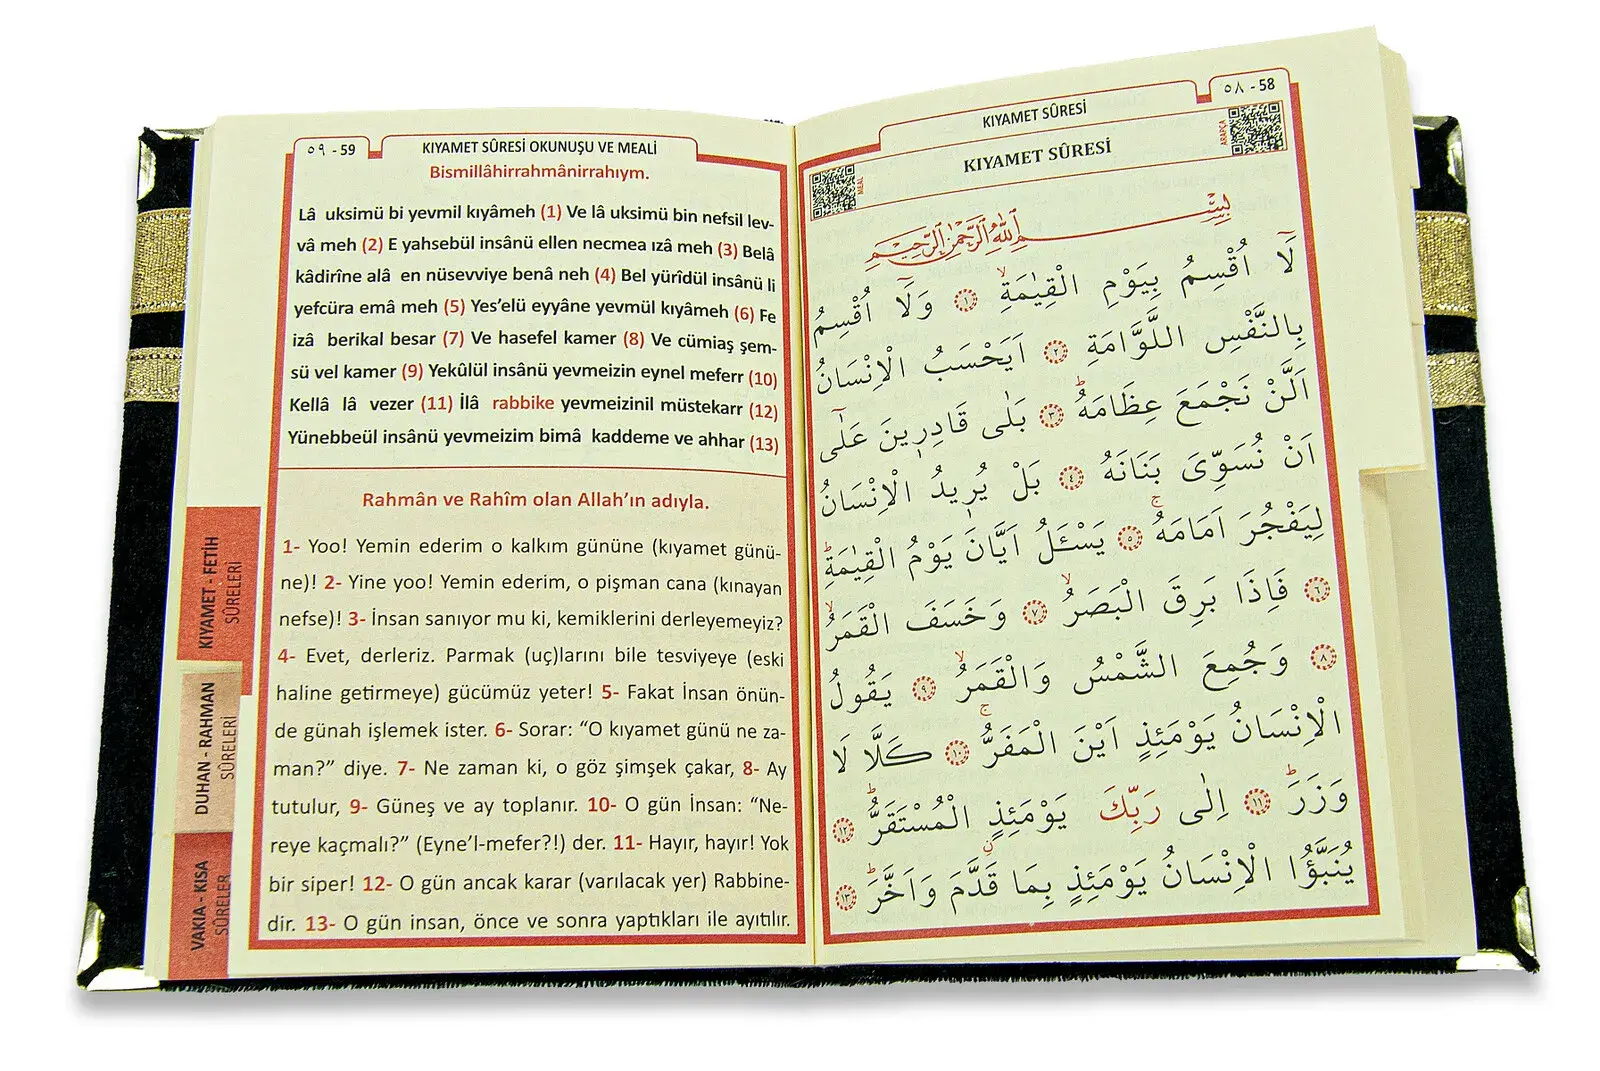 ٥٩ - 59
KIYAMET SÛRESİ OKUNUŞU VE MEALİ
Bismillâhirrahmânirrahıym.
Lâ uksimü bi yevmil kıyâmeh (1) Ve lâ uksimü bin nefsil lev-
vâ meh (2) E yahsebül insânü ellen necmea ızâ meh (3) Belâ
kâdirîne alâ en nüsevviye benâ neh (4) Bel yürîdül insânü li
yefcüra emâ meh (5) Yes'elü eyyâne yevmül kıyâmeh (6) Fe
izâ berikal besar (7) Ve hasefel kamer (8) Ve cümiaş şem-
sü vel kamer (9) Yekûlül insânü yevmeizin eynel meferr (10)
Kellâ lâ vezer (11) İlâ rabbike yevmeizinil müstekarr (12)
Yünebbeül insânü yevmeizim bimâ kaddeme ve ahhar (13)
Rahmân ve Rahîm olan Allah'ın adıyla.
1- Yoo! Yemin ederim o kalkım gününe (kıyamet günü-
ne)! 2- Yine yoo! Yemin ederim, o pişman cana (kınayan
nefse)! 3- İnsan sanıyor mu ki, kemiklerini derleyemeyiz?
4- Evet, derleriz. Parmak (uç)larını bile tesviyeye (eski
haline getirmeye) gücümüz yeter! 5- Fakat İnsan önün-
de günah işlemek ister. 6- Sorar: "O kıyamet günü ne za-
man?" diye. 7- Ne zaman ki, o göz şimşek çakar, 8- Ay
tutulur, 9- Güneş ve ay toplanır. 10- O gün İnsan: "Ne-
reye kaçmalı?" (Eyne'l-mefer?!) der. 11- Hayır, hayır! Yok
bir siper! 12- O gün ancak karar (varılacak yer) Rabbine-
dir. 13- O gün insan, önce ve sonra yaptıkları ile ayıtılır.
KIYAMET - FETİH
SÛRELERİ
DUHAN - RAHMAN
SÛRELERİ
VAKIA - KISA
SÛRELER
٥٨ - 58
KIYAMET SÛRESİ
MEAL
KIYAMET SÛRESİ
ARAPÇA
بِسْمِ اللّٰهِ الرَّحْمٰنِ الرَّحِيمِ
لَٓا اُقْسِمُ بِيَوْمِ الْقِيٰمَةِۙ ١ وَلَٓا اُقْسِمُ
بِالنَّفْسِ اللَّوَّامَةِ ٢ اَيَحْسَبُ الْاِنْسَانُ
اَلَّنْ نَجْمَعَ عِظَامَهُۜ ٣ بَلٰى قَادِرٖينَ عَلٰٓى
اَنْ نُسَوِّيَ بَنَانَهُ ٤ بَلْ يُرٖيدُ الْاِنْسَانُ
لِيَفْجُرَ اَمَامَهُۚ ٥ يَسْـَٔلُ اَيَّانَ يَوْمُ الْقِيٰمَةِۜ
٦ فَاِذَا بَرِقَ الْبَصَرُۙ ٧ وَخَسَفَ الْقَمَرُۙ
٨ وَجُمِعَ الشَّمْسُ وَالْقَمَرُۙ ٩ يَقُولُ
الْاِنْسَانُ يَوْمَئِذٍ اَيْنَ الْمَفَرُّۚ ١٠ كَلَّا لَا
وَزَرَۜ ١١ اِلٰى رَبِّكَ يَوْمَئِذٍۨ الْمُسْتَقَرُّۜ ١٢
يُنَبَّؤُا الْاِنْسَانُ يَوْمَئِذٍ بِمَا قَدَّمَ وَاَخَّرَۜ ١٣